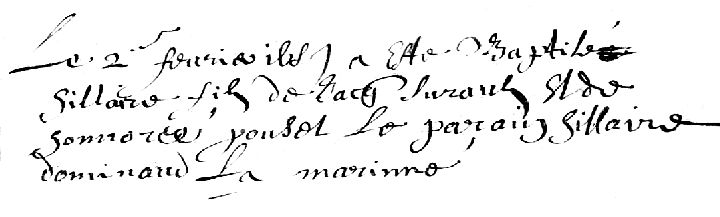 Le 2 feurier 1657 a este Baptisé
hillaire fils de Jacq Surault et de
honnoree pouset Le parain hillaire
dominaud La marinne